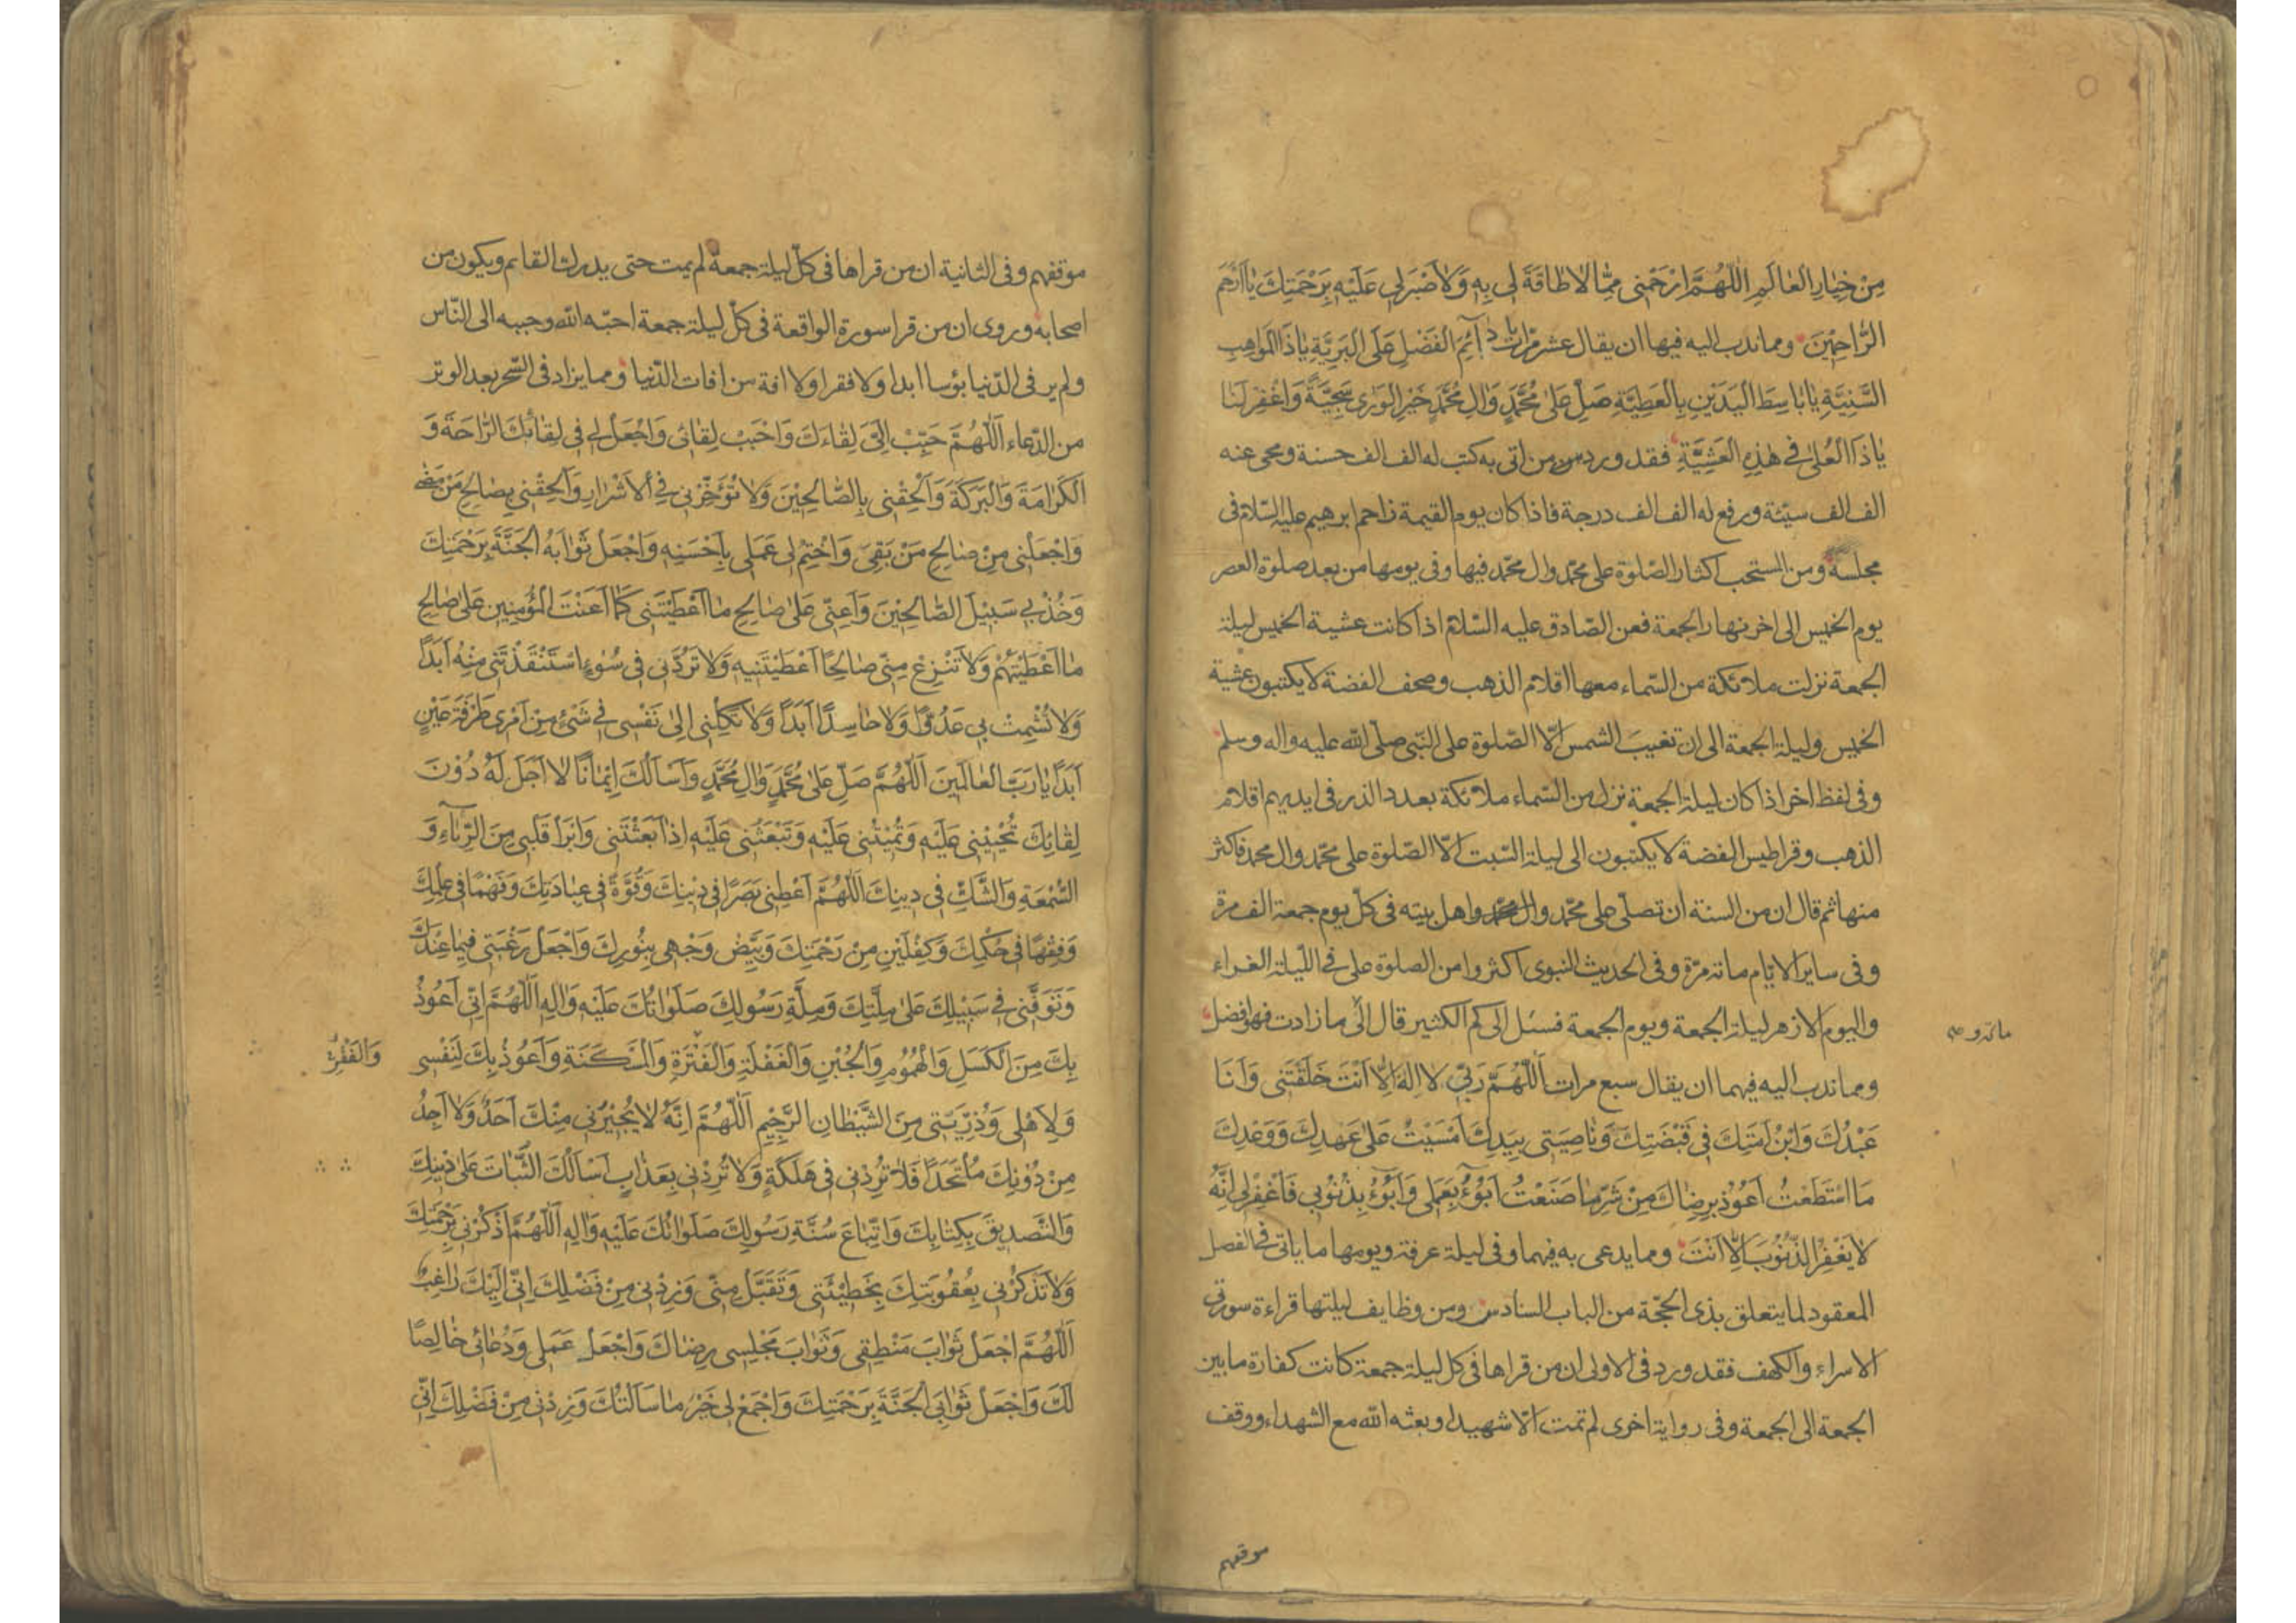 مِنْ خِيٰارِ الْعٰالَمِ اَللّٰهُمَّ ارْحَمْنى مِمّٰا لاٰ طٰاقَةَ لى بِهِ وَلاٰ صَبْرَ لى عَلَيْهِ بِرَحْمَتِكَ يٰا اَرْحَمَ
الرّٰاحِمِيْنَ ومما ندب اليه فيها ان يقال عشر مرات يٰا دٰآئِمَ الْفَضْلِ عَلَى الْبَرِيَّةِ يٰا ذَا الْمَوٰاهِبِ
السَّنِيَّةِ يٰا بٰاسِطَ الْيَدَيْنِ بِالْعَطِيَّةِ صَلِّ عَلىٰ مُحَمَّدٍ وَاٰلِ مُحَمَّدٍ خَيْرِ الْوَرىٰ سَجِيَّةً وَاغْفِرْ لَنٰا
يٰا ذَا الْعُلىٰ فى هٰذِهِ الْعَشِيَّةِ فقد ورد من اتى به كتب له الف الف حسنة ومحى عنه
الف الف سيّئة ورفع له الف الف درجة فاذا كان يوم القيمة زاحم ابرهيم عليه السّلام فى
مجلسه ومن المستحب اكثار الصّلوة على محمّد وال محمّد فيها وفى يومها من بعد صلوة العصر
يوم الخميس الى اخر نهار الجمعة فعن الصّادق عليه السّلام اذا كانت عشية الخميس ليلة
الجمعة نزلت ملائكة من السّماء معها اقلام الذهب وصحف الفضة لا يكتبون عشية
الخميس وليلة الجمعة الى ان تغيبَ الشمس الّا الصّلوة على النّبى صلّى الله عليه واله وسلم
وفى لفظ اخر اذا كان ليلة الجمعة نزل من السّماء ملائكة بعدد الذر فى ايديهم اقلام
الذهب وقراطيس الفضة لا يكتبون الى ليلة السّبت الّا الصّلوة على محمّد وال محمد فاكثر
منها ثم قال ان من السنة ان تصلّى على محمّد وال محمّد واهل بيته فى كلّ يوم جمعة الف مرة
وفى ساير الايّام مائة مرّة وفى الحديث النبوى اكثروا من الصلوة على فى اللّيلة الغراء
واليوم الازهر ليلة الجمعة ويوم الجمعة فسئل الى كم الكثير قال الى مازادت فهو افضل
ومما ندب اليه فيهما ان يقال سبع مرات اَللّٰهُمَّ رَبّى لاٰ اِلٰهَ اِلاّٰ اَنْتَ خَلَقْتَنى وَاَنَا
عَبْدُكَ وَابْنُ اَمَتِكَ فى قَبْضَتِكَ وَنٰاصِيَتى بِيَدِكَ اَمْسَيْتُ عَلىٰ عَهْدِكَ وَوَعْدِكَ
مَا اسْتَطَعْتُ اَعُوذُ بِرِضٰاكَ مِنْ شَرِّ مٰا صَنَعْتُ اَبُوْءُ بِعَمَلى وَاَبُوْءُ بِذُنُوْبى فَاغْفِرْ لى اِنَّهُ
لاٰ يَغْفِرُ الذُّنُوْبَ اِلاّٰ اَنْتَ ومما يدعى به فيهما وفى ليلة عرفة ويومها ما ياتى فى الفصل
المعقود لما يتعلق بذى الحجّة من الباب السادس ومن وظايف ليلتها قراءة سورتى
الاسراء والكهف فقد ورد فى الاولى ان من قراها فى كل ليلة جمعة كانت كفارة ما بين
الجمعة الى الجمعة وفى رواية اخرى لم تمت الّا شهيدا وبعثه الله مع الشهداء ووقف
موقفهم
موقفهم وفى الثانية ان من قراها فى كلّ ليلة جمعة لم يمت حتى يدرك القايم ويكون من
اصحابه وروى ان من قرا سورة الواقعة فى كلّ ليلة جمعة احبّه الله وحببه الى النّاس
ولم ير فى الدّنيا بؤسا ابدا ولا فقرا ولا افة من افات الدّنيا ومما يزاد فى السّحر بعد الوتر
من الدّعاء اَللّٰهُمَّ حَبِّبْ اِلَىَّ لِقٰاءَكَ وَاَحْبِبْ لِقٰائى وَاجْعَلْ لى فى لِقٰائِكَ الرّٰاحَةَ وَ
الْكَرٰامَةَ وَالْبَرَكَةَ وَاَلْحِقْنى بِالصّٰالِحِيْنَ وَلاٰ تُؤَخِّرْنى فِى الْاَشْرٰارِ وَاَلْحِقْنى بِصٰالِحِ مَنْ مَضىٰ
وَاجْعَلْنى مِنْ صٰالِحِ مَنْ بَقِىَ وَاخْتِمْ لى عَمَلى بِاَحْسَنِهِ وَاجْعَلْ ثَوٰابَهُ الْجَنَّةَ بِرَحْمَتِكَ
وَخُذْ بى سَبيْلَ الصّٰالِحِيْنَ وَاَعِنّى عَلىٰ صٰالِحِ مٰا اَعْطَيْتَنى كَمٰا اَعَنْتَ الْمُؤْمِنِينَ عَلىٰ صٰالِحِ
مٰا اَعْطَيْتَهُمْ وَلاٰ تَنْزِعْ مِنّى صٰالِحًا اَعْطَيْتَنيهِ وَلاٰ تَرُدَّنى فى سُوْءٍ اسْتَنْقَذْتَنى مِنْهُ اَبَدًا
وَلاٰ تُشْمِتْ بى عَدُوًّا وَلاٰ حٰاسِدًا اَبَدًا وَلاٰ تَكِلْنى اِلىٰ نَفْسى فى شَىْءٍ مِنْ اَمْرى طَرْفَةَ عَيْنٍ
اَبَدًا يٰا رَبَّ الْعٰالَمينَ اَللّٰهُمَّ صَلِّ عَلىٰ مُحَمَّدٍ وَاٰلِ مُحَمَّدٍ وَاَسْاَلُكَ اِيْمٰانًا لاٰ اَجَلَ لَهُ دُوْنَ
لِقٰائِكَ تُحْيِيْنى عَلَيْهِ وَتُمِيْتُنى عَلَيْهِ وَتَبْعَثُنى عَلَيْهِ اِذٰا بَعَثْتَنى وَابْرَأْ قَلْبى مِنَ الرِّيٰآءِ وَ
السُّمْعَةِ وَالشَّكِّ فى دينِكَ اَللّٰهُمَّ اَعْطِنى بَصَرًا فى دِيْنِكَ وَقُوَّةً فى عِبٰادَتِكَ وَفَهْمًا فى عِلْمِكَ
وَفِقْهًا فى حُكْمِكَ وَكِفْلَيْنِ مِنْ رَحْمَتِكَ وَبَيِّضْ وَجْهى بِنُورِكَ وَاجْعَلْ رَغْبَتى فيمٰا عِنْدَكَ
وَتَوَفَّنى فى سَبيْلِكَ عَلىٰ مِلَّتِكَ وَمِلَّةِ رَسُولِكَ صَلَوٰاتُكَ عَلَيْهِ وَاٰلِهِ اَللّٰهُمَّ اِنّى اَعُوْذُ
بِكَ مِنَ الْكَسَلِ وَالْهُمُوْمِ وَالْجُبْنِ وَالْغَفْلَةِ وَالْفَتْرَةِ وَالْمَسْكَنَةِ وَاَعُوْذُ بِكَ لِنَفْسى
وَالْفَقْرِ
وَلِاَهْلى وَذُرِّيَّتى مِنَ الشَّيْطٰانِ الرَّجيْمِ اَللّٰهُمَّ اِنَّهُ لاٰ يُجيْرُنى مِنْكَ اَحَدٌ وَلاٰ اَجِدُ
مِنْ دُوْنِكَ مُلْتَحَدًا فَلاٰ تَرُدَّنى فى هَلَكَةٍ وَلاٰ تُرِدْنى بِعَذٰابٍ اَسْاَلُكَ الثَّبٰاتَ عَلىٰ دينِكَ
وَالتَّصْديقَ بِكِتٰابِكَ وَاتِّبٰاعَ سُنَّةِ رَسُولِكَ صَلَوٰاتُكَ عَلَيْهِ وَاٰلِهِ اَللّٰهُمَّ اذْكُرْنى بِرَحْمَتِكَ
وَلاٰ تَذْكُرْنى بِعُقُوبَتِكَ بِخَطيْئَتى وَتَقَبَّلْ مِنّى وَزِدْنى مِنْ فَضْلِكَ اِنّى اِلَيْكَ رٰاغِبٌ
اَللّٰهُمَّ اجْعَلْ ثَوٰابَ مَنْطِقى وَثَوٰابَ مَجْلِسى رِضٰاكَ وَاجْعَلْ عَمَلى وَدُعٰائى خٰالِصًا
لَكَ وَاجْعَلْ ثَوٰابِىَ الْجَنَّةَ بِرَحْمَتِكَ وَاجْمَعْ لى خَيْرَ مٰا سَاَلْتُكَ وَزِدْنى مِنْ فَضْلِكَ اِنّى